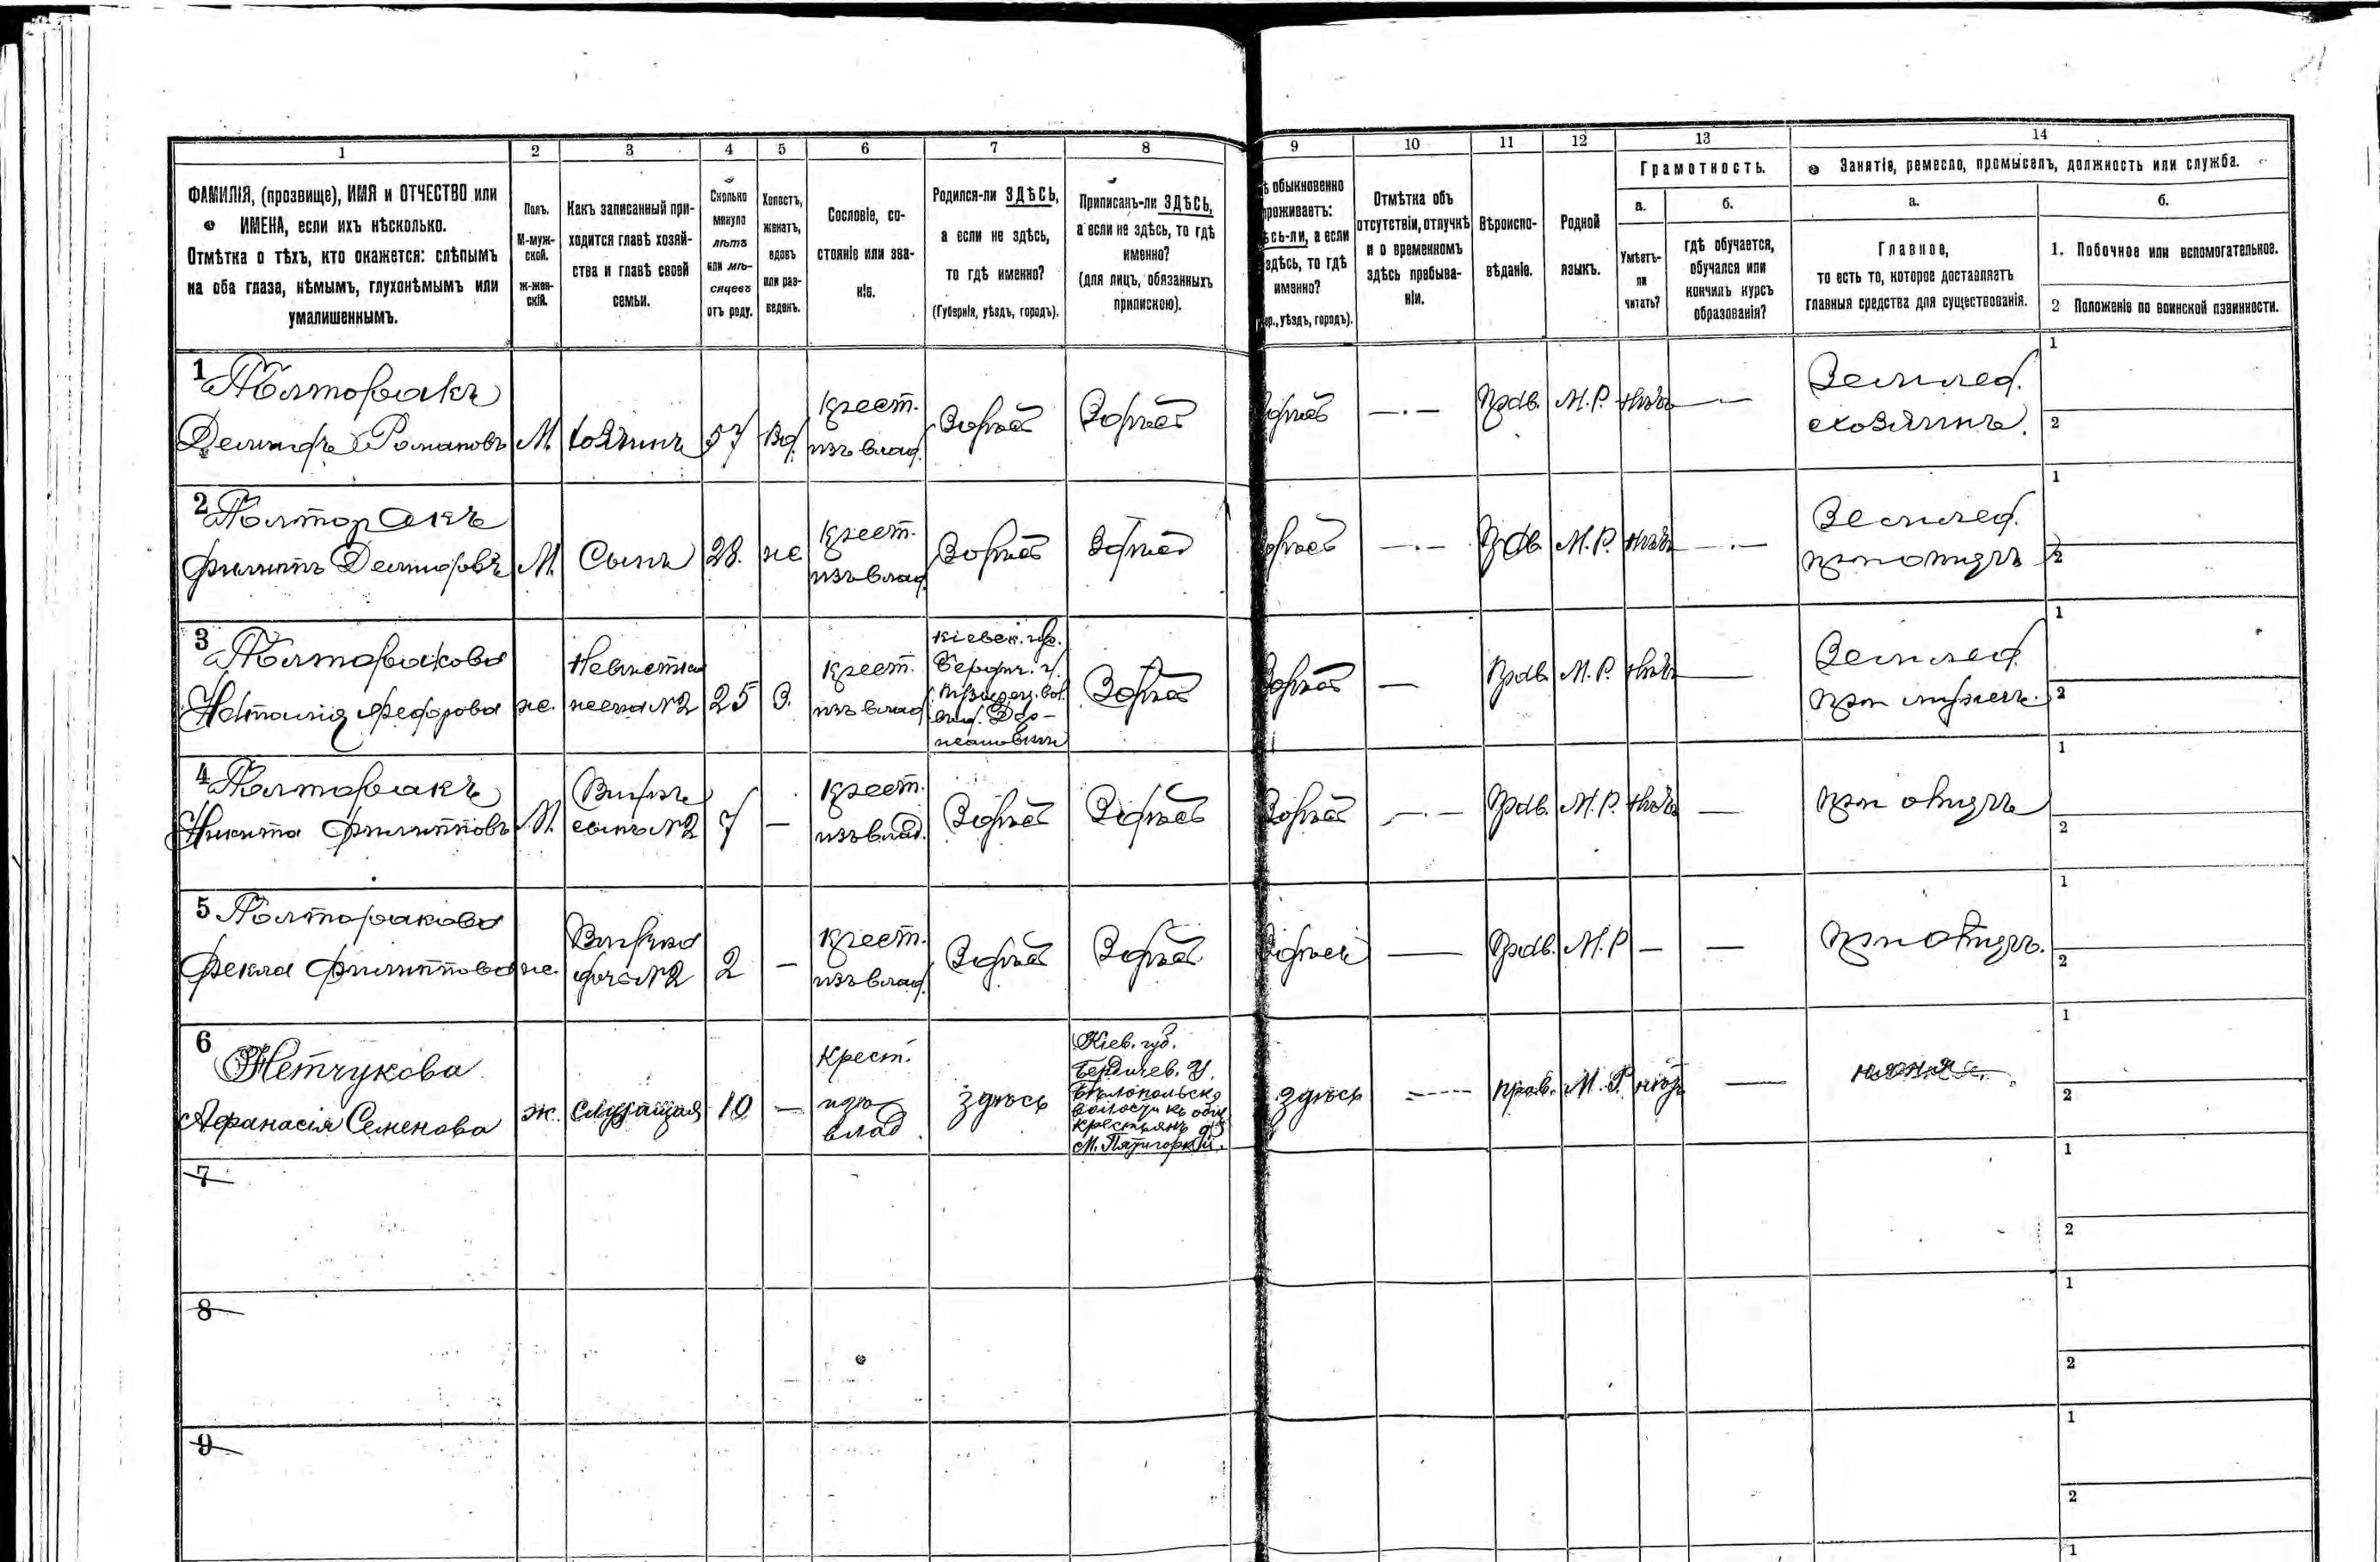 1
2
3
4
5
6
7
8
9
10
11
12
13
14
ФАМИЛІЯ, (прозвище), ИМЯ и ОТЧЕСТВО или
ИМЕНА, если ихъ нѣсколько.
Отмѣтка о тѣхъ, кто окажется: слѣпымъ
на оба глаза, нѣмымъ, глухонѣмымъ или
умалишеннымъ.
Полъ.
М-муж-
ской.
ж-жен-
скій.
Какъ записанный при-
ходится главѣ хозяй-
ства и главѣ своей
семьи.
Сколько
минуло
лѣтъ
или мѣ-
сяцевъ
отъ роду.
Холостъ,
женатъ,
вдовъ
или раз-
веденъ.
Сословіе, со-
стояніе или зва-
ніе.
Родился-ли ЗДѢСЬ,
а если не здѣсь,
то гдѣ именно?
(Губернія, уѣздъ, городъ).
Приписанъ-ли ЗДѢСЬ,
а если не здѣсь, то гдѣ
именно?
(для лицъ, обязанныхъ
припискою).
ѣ обыкновенно
роживаетъ:
ѣсь-ли, а если
здѣсь, то гдѣ
именно?
р., уѣздъ, городъ).
Отмѣтка объ
отсутствіи, отлучкѣ
и о временномъ
здѣсь пребыва-
ніи.
Вѣроиспо-
вѣданіе.
Родной
языкъ.
Грамотность.
а.
Умѣетъ-
ли
читать?
б.
гдѣ обучается,
обучался или
кончилъ курсъ
образованія?
Занятія, ремесло, промыселъ, должность или служба.
а.
Главное,
то есть то, которое доставляетъ
главныя средства для существованія.
б.
1. Побочное или вспомогательное.
2 Положеніе по воинской повинности.
1
Полторакъ
Демидъ Романовъ
М.
хозяинъ
57
Вд.
крест.
изъ влад.
Здѣсь
Здѣсь
здѣсь
—·—
Прав.
М.Р.
нѣтъ
—·—
Землед.
хозяинъ.
1
2
2
Полторакъ
Филиппъ Демидовъ
М.
Сынъ
28.
же
крест.
изъ влад.
Здѣсь
Здѣсь
здѣсь
—·—
Прав.
М.Р.
нѣтъ
—·—
Землед.
при отцѣ
1
2
3
Полторакова
Наталія Федорова
же.
Невѣстка
жена №2
25
З.
крест.
изъ влад.
Кіевск. губ.
Бердич. у.
Здѣсь
Здѣсь
—
Прав.
М.Р.
нѣтъ
—
Землед.
при мужѣ.
1
2
4
Полторакъ
Никита Филипповъ
М.
Внукъ
сынъ №2
7
—
крест.
изъ влад.
Здѣсь
Здѣсь
Здѣсь
—·—
Прав.
М.Р.
нѣтъ
—
при отцѣ
1
2
5
Полторакова
Фекла Филиппова
же.
Внучка
дочь №2
2
—
крест.
изъ влад.
Здѣсь
Здѣсь
Здѣсь
—
Прав.
М.Р
—
—
при отцѣ.
1
2
6
Нетчукова
Афанасія Семенова
ж.
служащая
10
—
крест.
изъ
влад.
здѣсь
Кіев. губ.
Бердичев. у.
Бѣлопольск.
волости къ общ.
крестьянъ
М. Пятигорки.
здѣсь
прав.
М.Р.
нѣтъ
—
няня
1
2
7
1
2
8
1
2
9
1
2
1